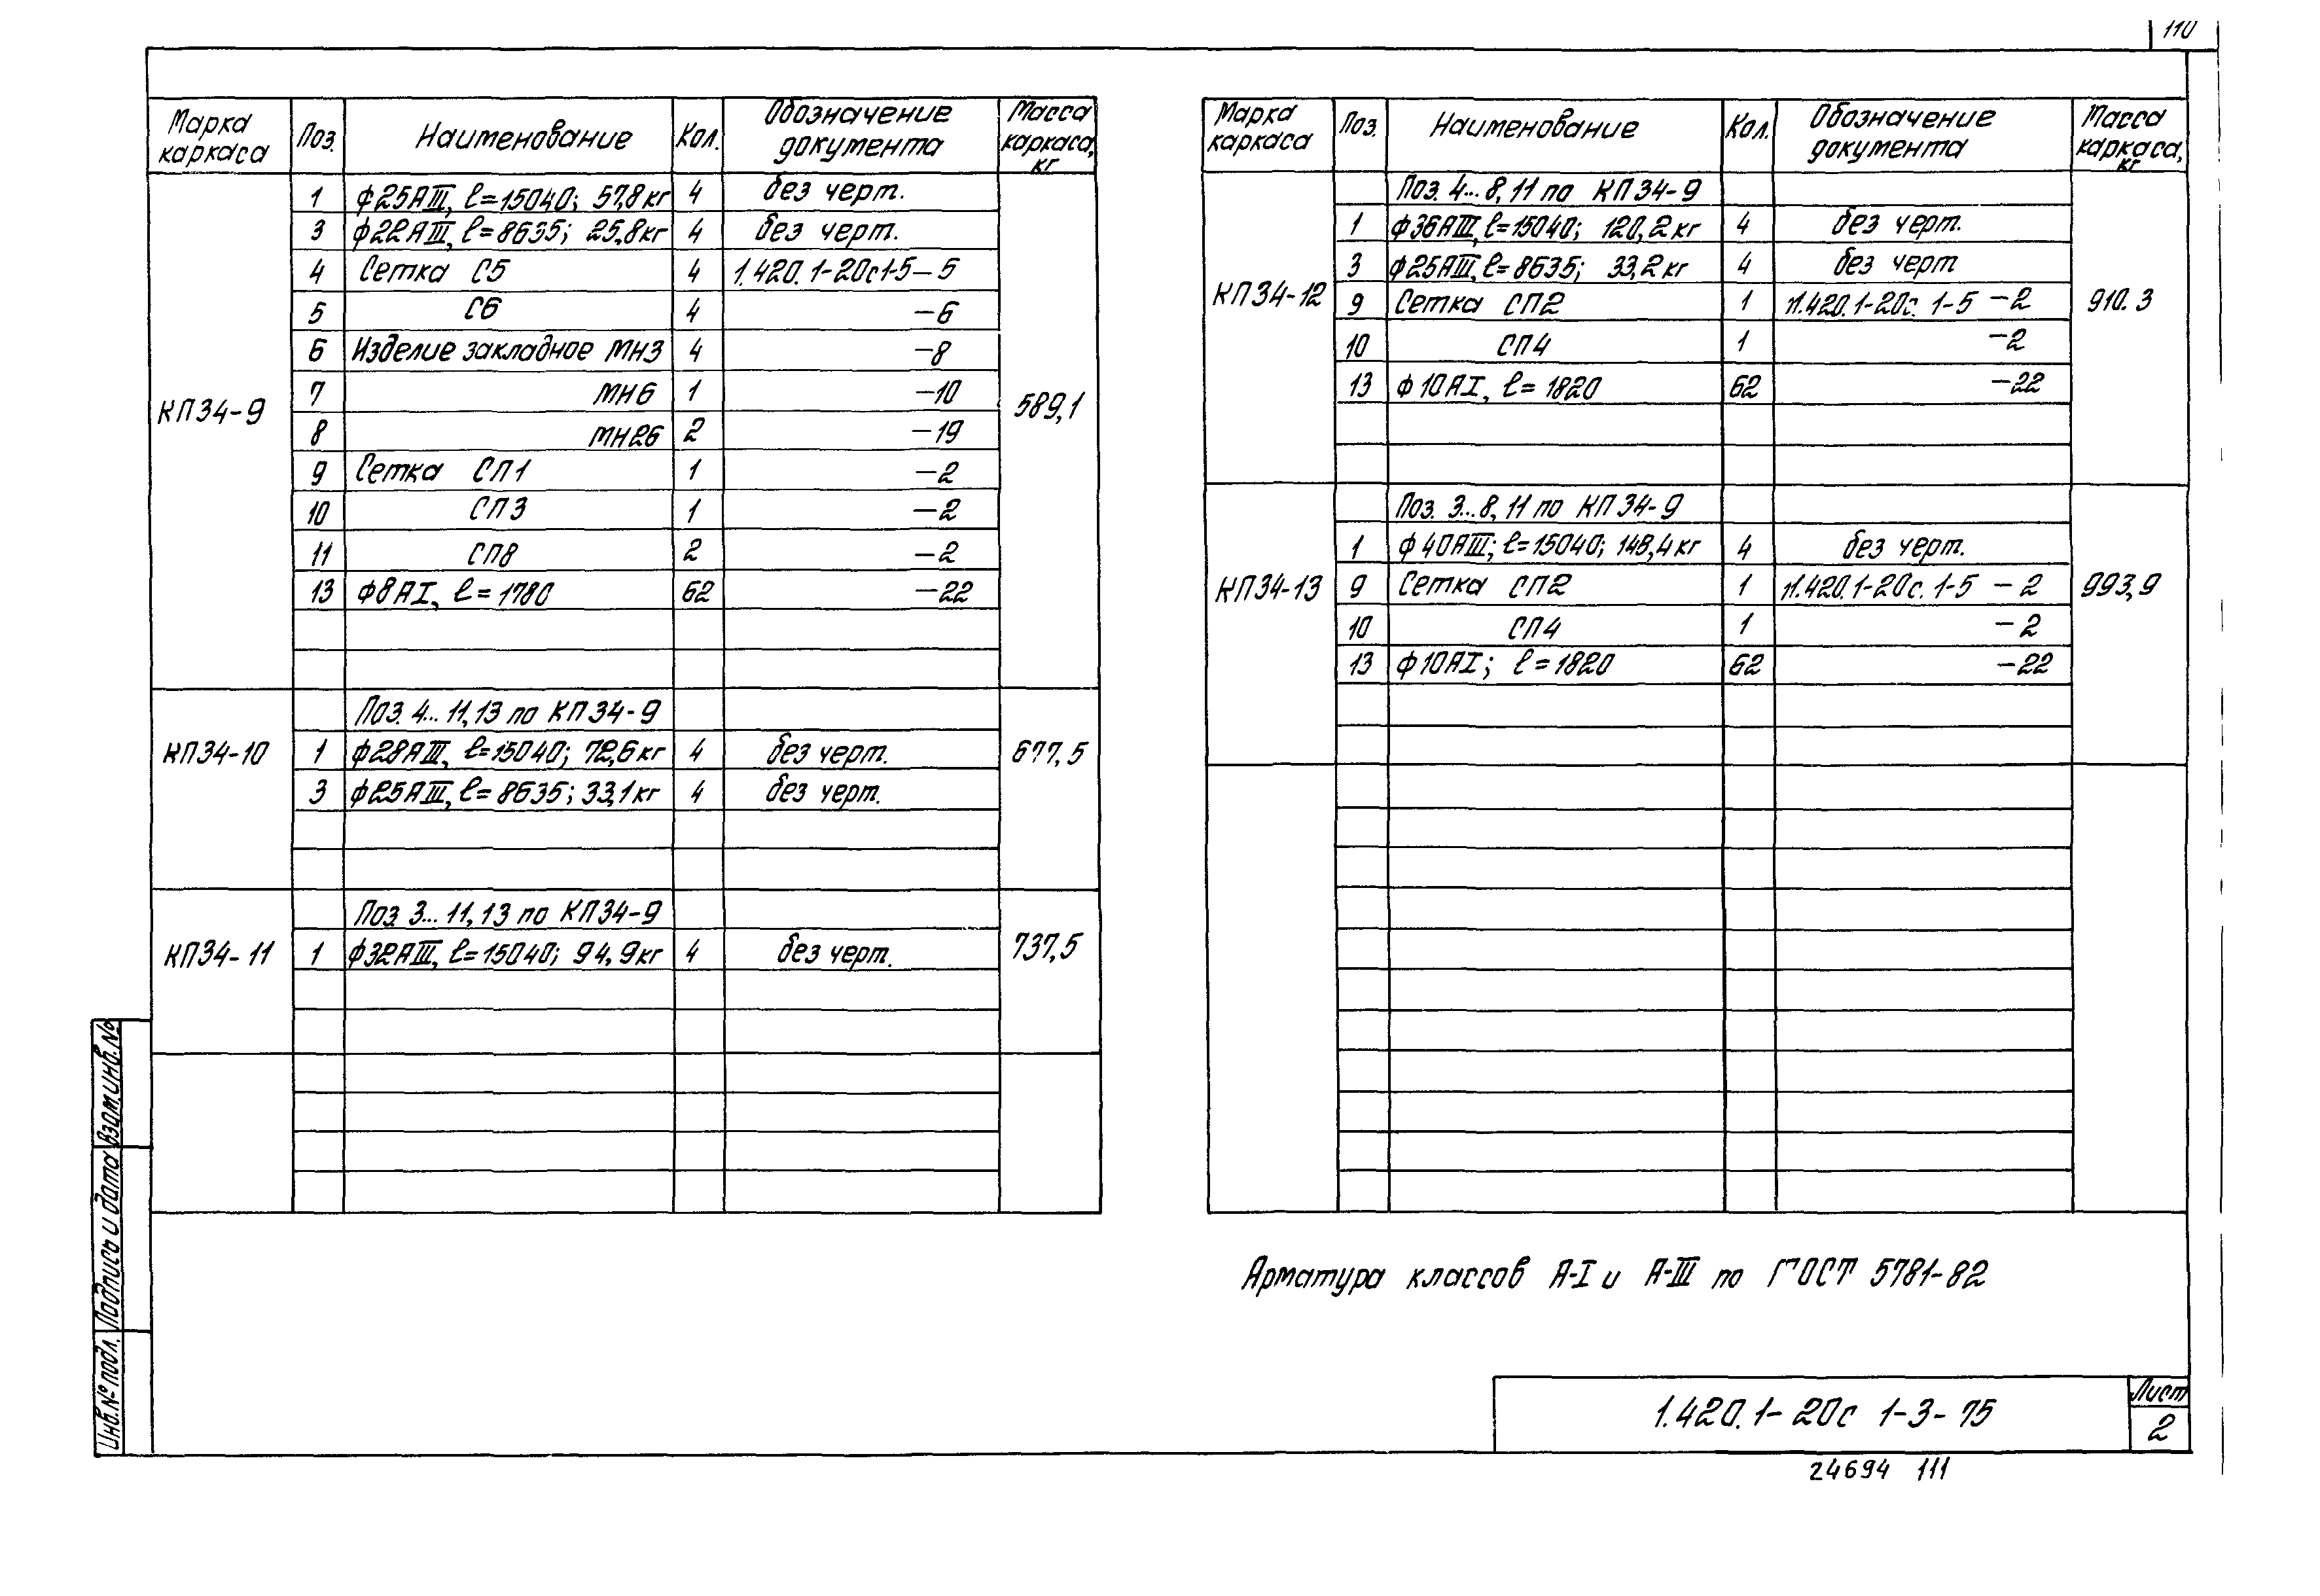 110
Марка каркаса Поз. Наименование Кол. Обозначение документа Масса каркаса, кг
КП34-9 589,1
1 ф25АIII, ℓ=15040; 57,8кг 4 без черт.
3 ф22АIII, ℓ=8635; 25,8кг 4 без черт.
4 Сетка С5 4 1.420.1-20с1-5-5
5 С6 4 -6
6 Изделие закладное МН3 4 -8
7 МН6 1 -10
8 МН26 2 -19
9 Сетка СП1 1 -2
10 СП3 1 -2
11 СП8 2 -2
13 ф8АI, ℓ=1780 62 -22
КП34-10 677,5
Поз. 4... 11,13 по КП34-9
1 ф28АIII, ℓ=15040; 72,6кг 4 без черт.
3 ф25АIII, ℓ=8635; 33,1кг 4 без черт.
КП34-11 737,5
Поз 3... 11,13 по КП34-9
1 ф32АIII, ℓ=15040; 94,9кг 4 без черт.
Марка каркаса Поз. Наименование Кол. Обозначение документа Масса каркаса, кг
КП34-12 910.3
Поз. 4... 8,11 по КП34-9
1 ф36АIII, ℓ=15040; 120,2кг 4 без черт.
3 ф25АIII, ℓ=8635; 33,2кг 4 без черт
9 Сетка СП2 1 1.420.1-20с. 1-5 -2
10 СП4 1 -2
13 ф10АI, ℓ=1820 62 -22
КП34-13 993,9
Поз. 3...8,11 по КП34-9
1 ф40АIII; ℓ=15040; 148,4кг 4 без черт.
9 Сетка СП2 1 1.420.1-20с. 1-5 -2
10 СП4 1 -2
13 ф10АI; ℓ=1820 62 -22
Арматура классов А-I и А-III по ГОСТ 5781-82
Взам.инв.№
Подпись и дата
Инв.№ подл.
1.420.1-20с 1-3-75
Лист
2
24694 111